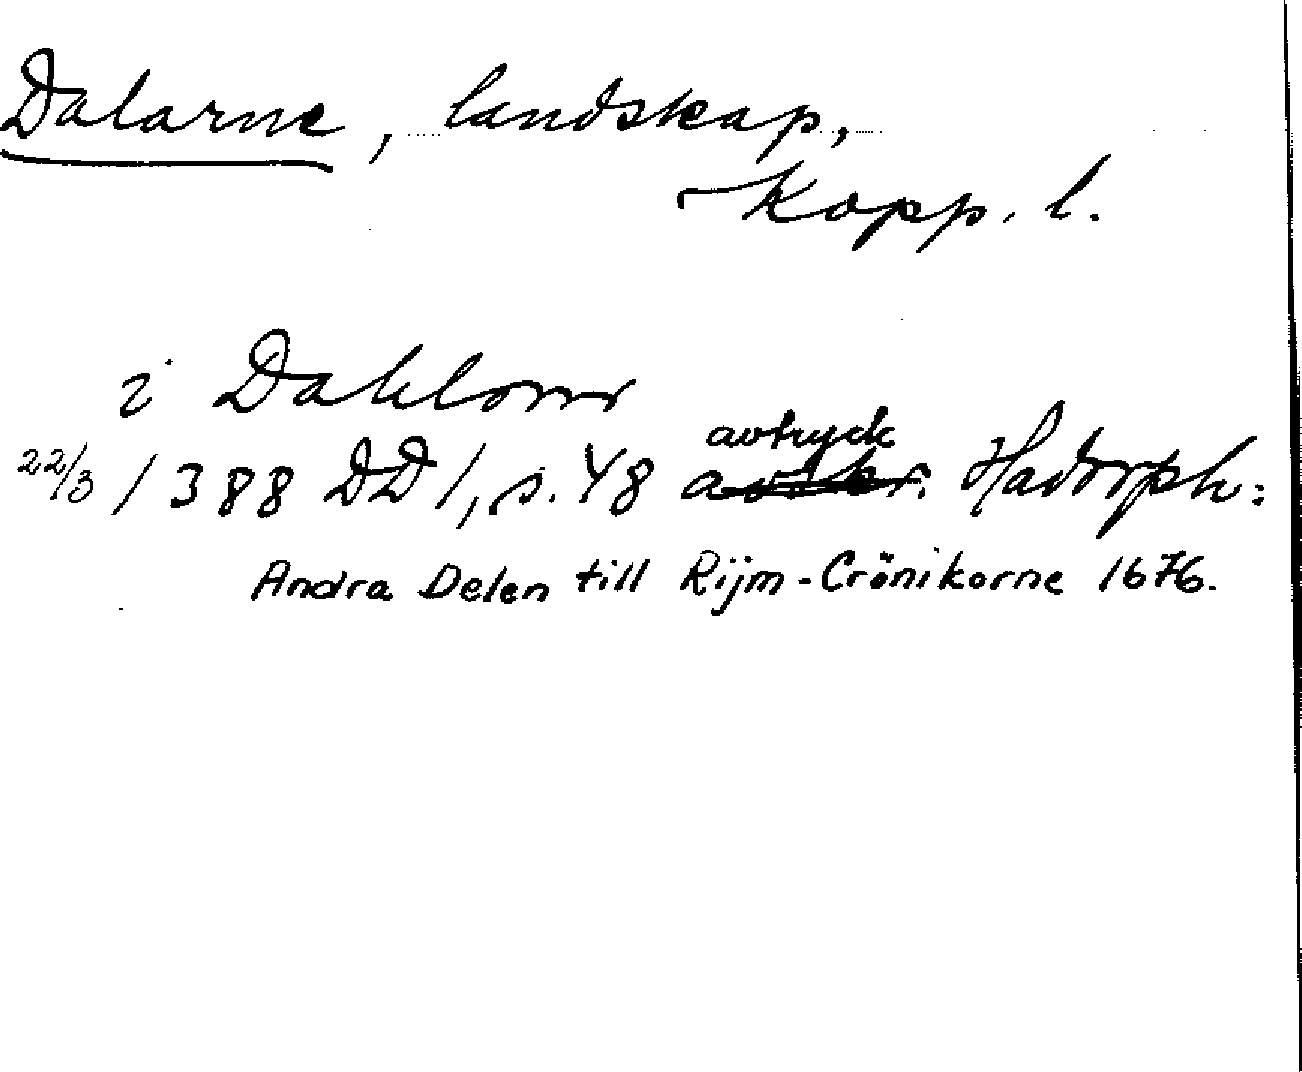 Dalarne, landskap,
Kopp. l.
i Dahlom
22/3 1388 DD 1, s. 48 avtryck Hadorph:
Andra Delen till Rijm-Crönikorne 1676.